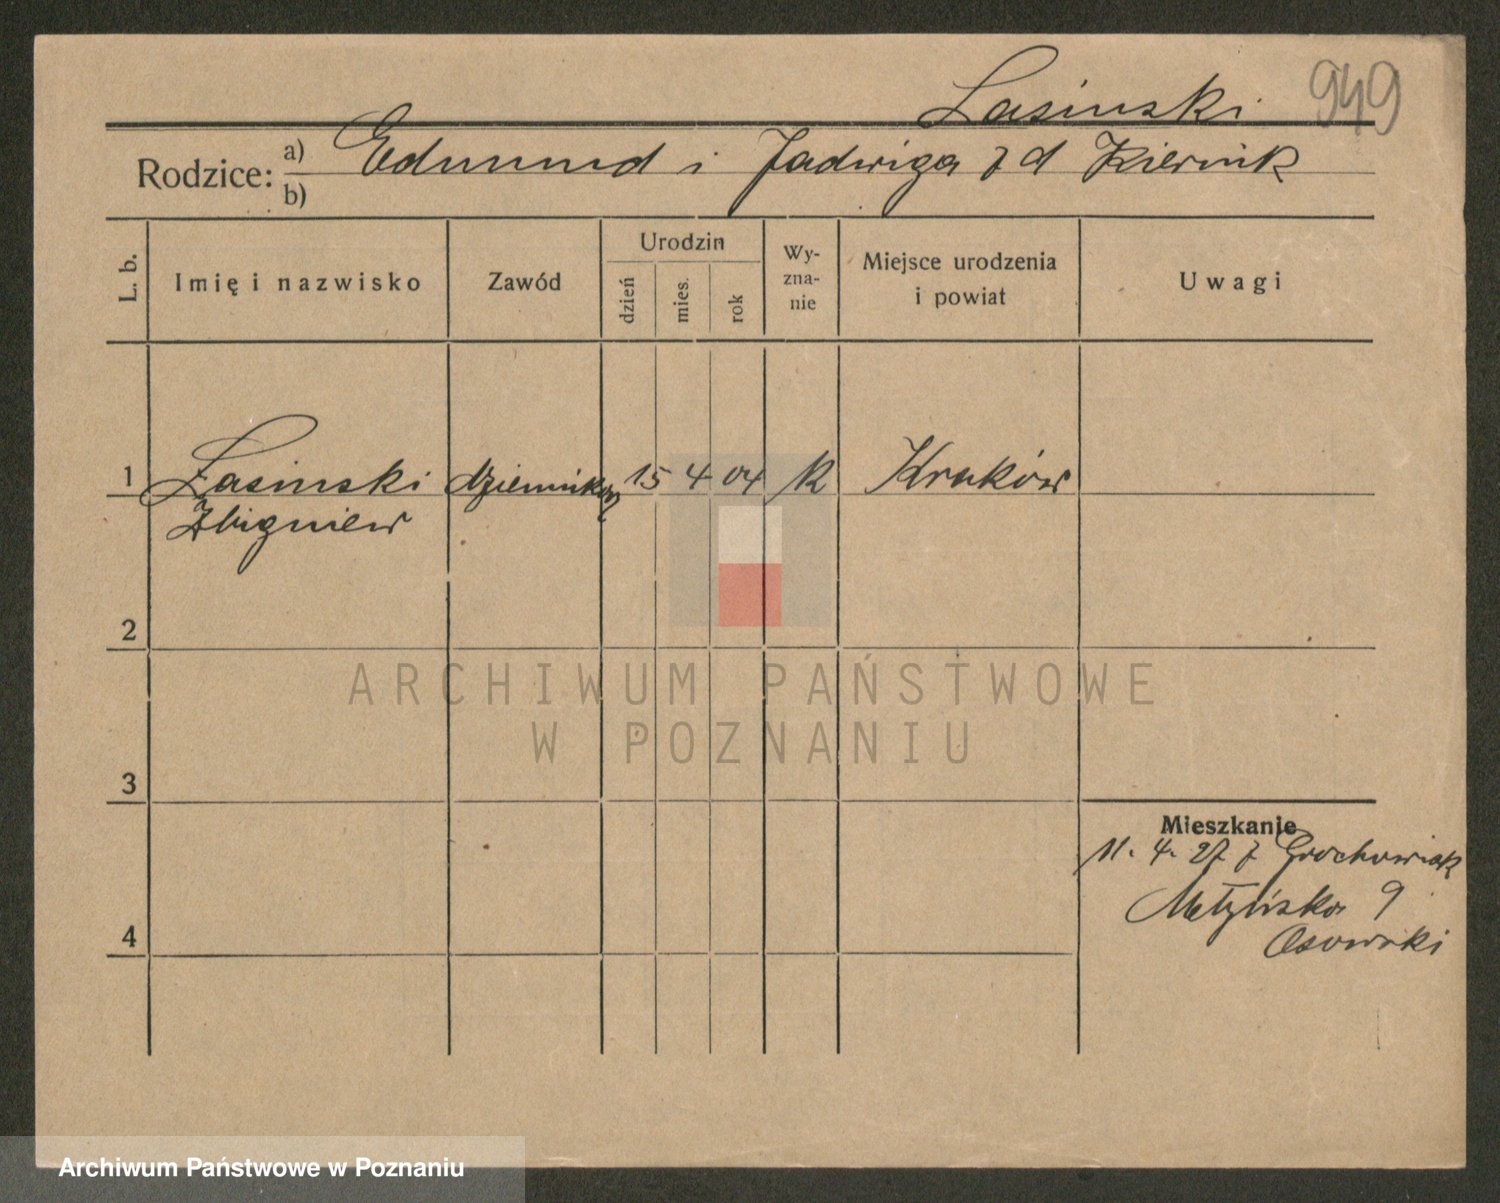 Lasinski 949
Rodzice: a) Edmund i Jadwiga z d Kiernik
b)
L. b. Imię i nazwisko Zawód Urodzin dzień mies. rok Wy-zna-nie Miejsce urodzenia i powiat Uwagi
1 Łasinski dziennikarz 15 4 04 k Kraków
Zbigniew
2
ARCHIWUM PAŃSTWOWE
W POZNANIU
3
Mieszkanie
11. 4. 27 z Grochowiak
9
Osowski
4
Archiwum Państwowe w Poznaniu